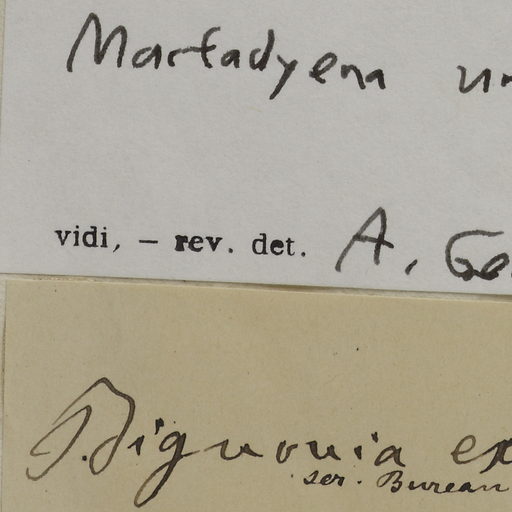 Marfadyena un
vidi, – rev. det. A. Ge
Bignonia ex
ser. Bureau